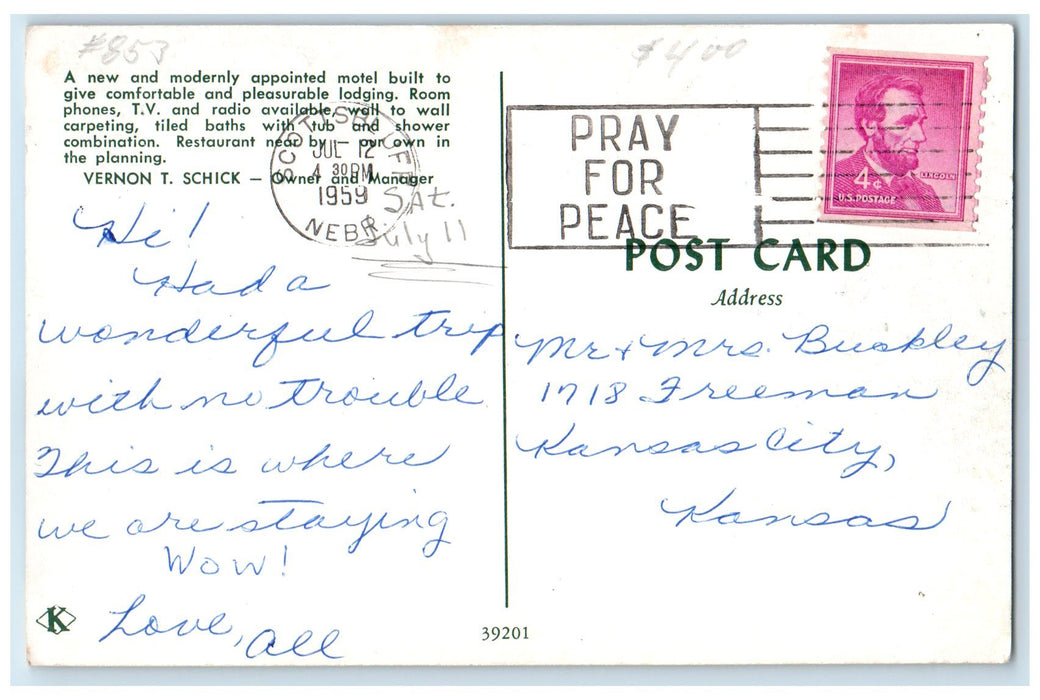 #853
$4.00
A new and modernly appointed motel built to
give comfortable and pleasurable lodging. Room
phones, T.V. and radio available, wall to wall
carpeting, tiled baths with tub and shower
combination. Restaurant near by – our own in
the planning.
VERNON T. SCHICK — Owner and Manager
SCOTTSBLUFF
JUL 12
4 30 PM
1959
NEBR
PRAY
FOR
PEACE
4¢
LINCOLN
U.S. POSTAGE
Sat.
July 11
Hi!
Had a
wonderful trip
with no trouble.
This is where
we are staying
Wow!
Love, all
K
39201
POST CARD
Address
Mr + Mrs. Buckley
1718 Freeman
Kansas City,
Kansas